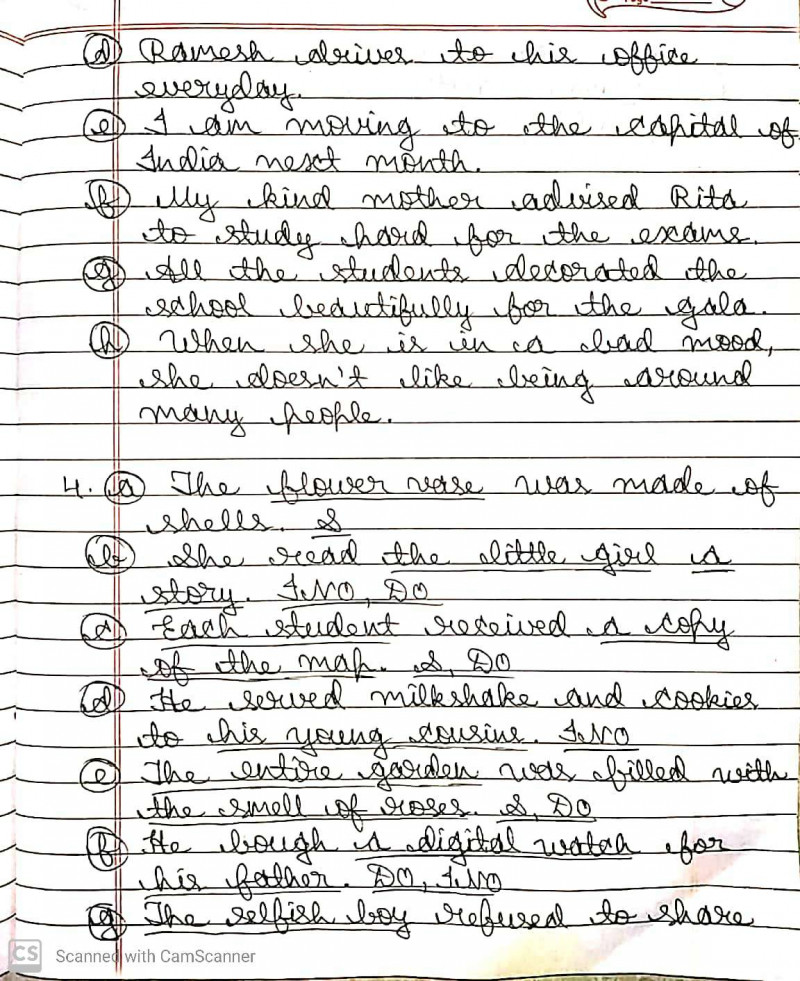 (d) Ramesh drives to his office
everyday.
(e) I am moving to the capital of
India next month.
(f) My kind mother advised Rita
to study hard for the exams.
(g) All the students decorated the
school beautifully for the gala.
(h) When she is in a bad mood,
she doesn't like being around
many people.
4. (a) The flower vase was made of
shells. S
(b) She read the little girl a
story. INO, DO
(c) Each student received a copy
of the map. S, DO
(d) He served milkshake and cookies
to his young cousins. INO
(e) The entire garden was filled with
the smell of roses. S, DO
(f) He bough a digital watch for
his father. DO, INO
(g) The selfish boy refused to share
CS Scanned with CamScanner